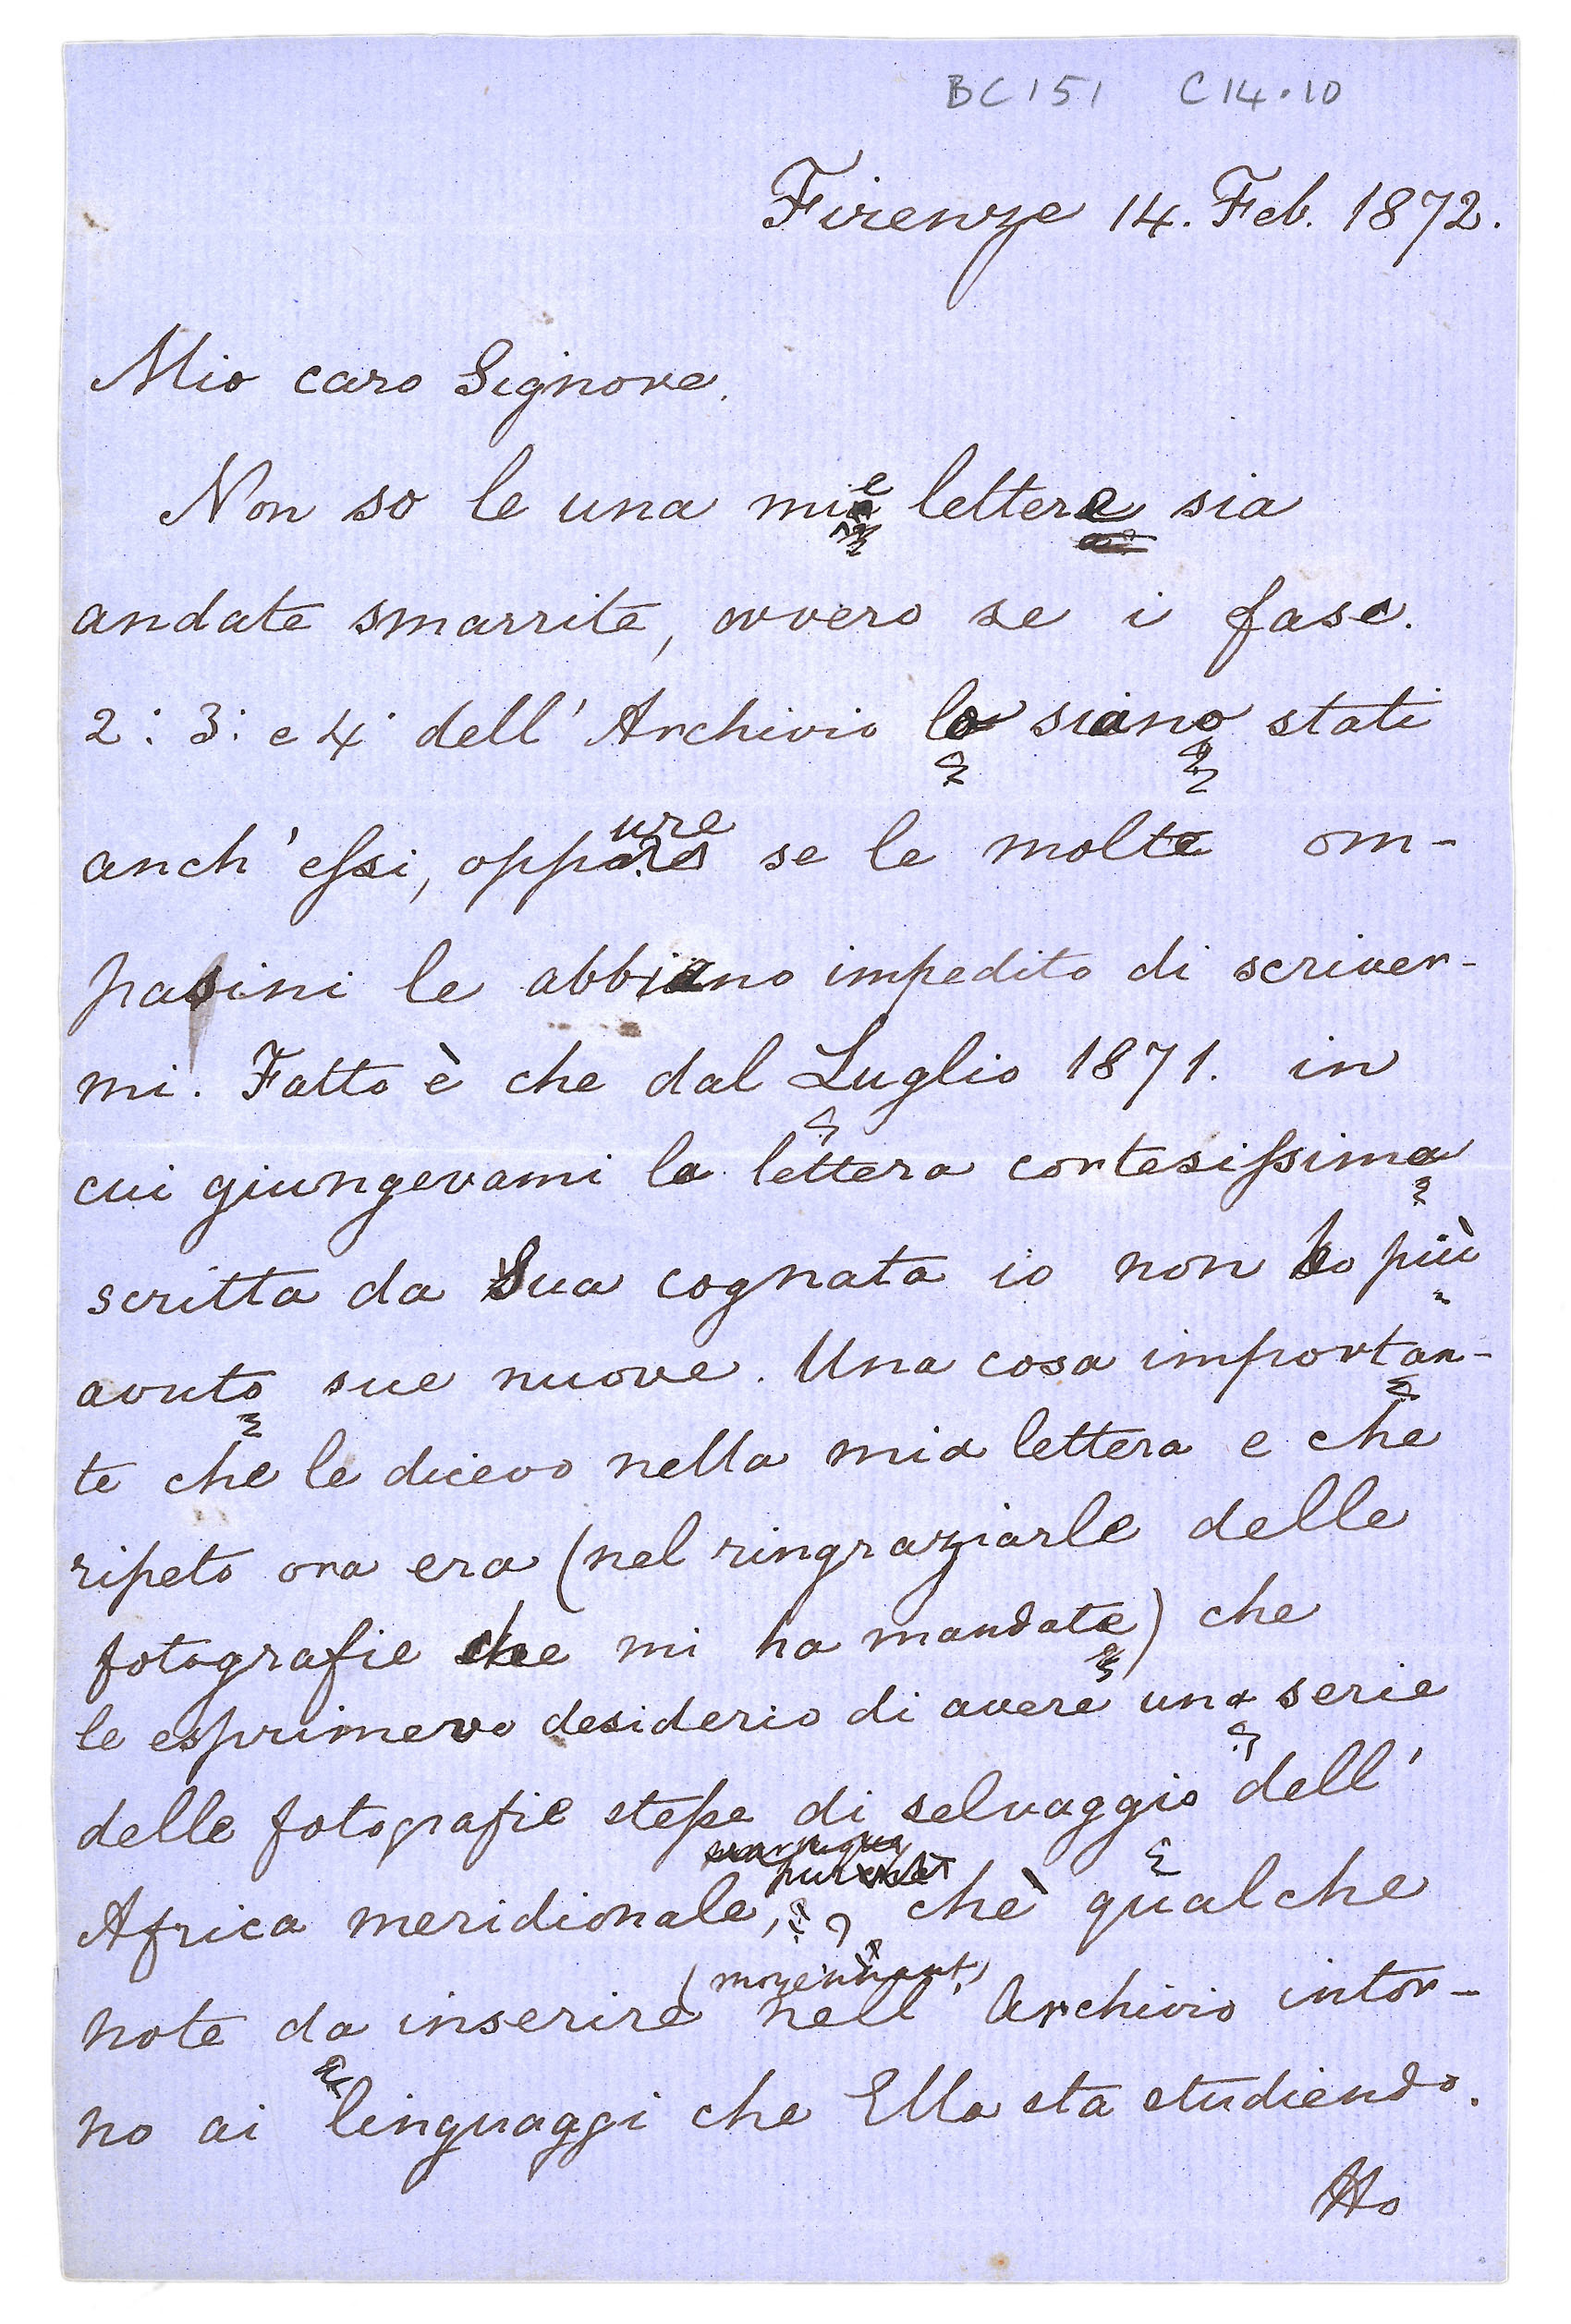 BC151 C14.10
Firenze 14. Feb. 1872.
Mio caro Signore.
Non so le una mie lettere sia
andate smarrite, ovvero se i fasc.
2: 3: e 4 dell' Archivio lo siano stati
anch' essi, oppure se le molte om-
pasini le abbiano impedito di scriver-
mi. Fatto è che dal Luglio 1871. in
cui giungevami la lettera cortesissima
scritta da Sua cognata io non ho più
avuto sue nuove. Una cosa importan-
te che le dicevo nella mia lettera e che
ripeto ora era (nel ringraziarle delle
fotografie che mi ha mandate) che
le esprimevo desiderio di avere una serie
delle fotografie stesse di selvaggio dell'
Africa meridionale, chè qualche
(moyennant)
note da inserire nell' Archivio intor-
no ai linguaggi che Ella sta studiendo.
Ho